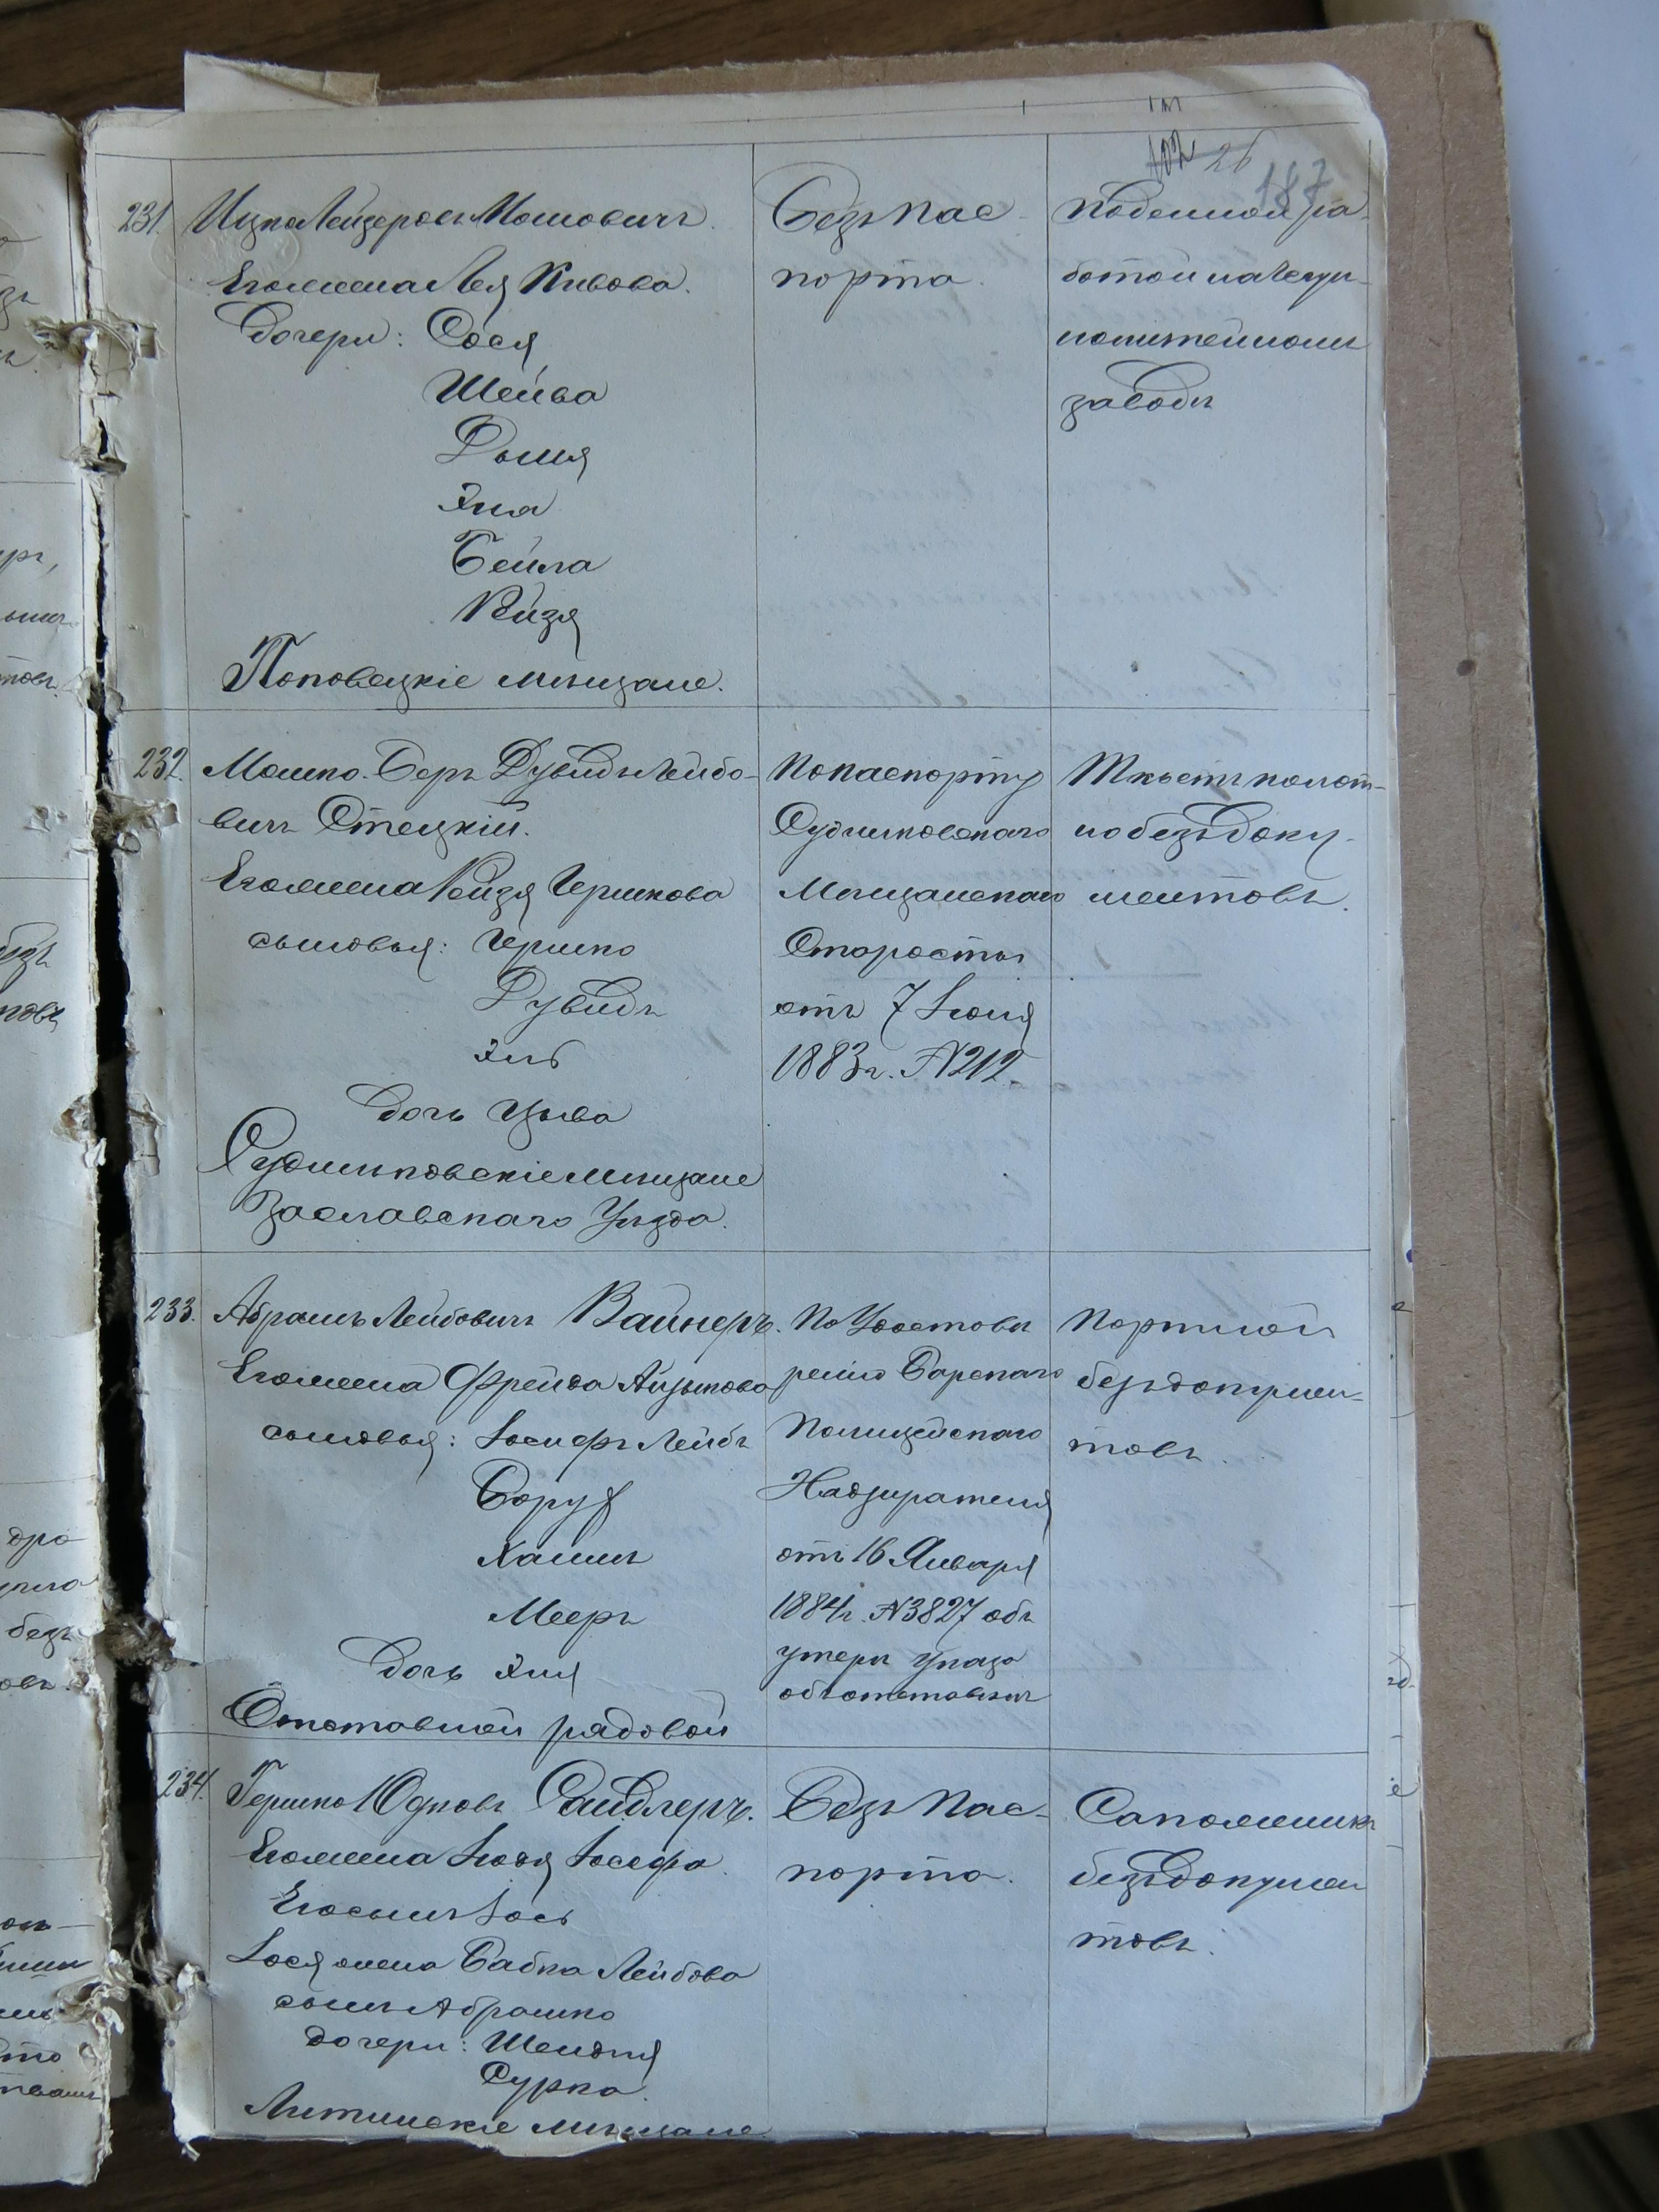 102 26
187
231. Ицко Лейзеровъ Мошовичъ. 
Его жена Лея Кивова.
дочери: Сося
Шейва
Дыня
Эна
Бейла
Рейзя
Поповецкіе мѣщане.
Безъ пас-
порта.
Поденной ра-
ботой на
заводѣ
232. Мошко-Беръ Дувидъ Лейбо-
вичъ Стецкій.
Его жена Рейзя Гершкова
сыновья: Гершко
Дувидъ
Эль
дочь Цыва
Судилковскіе мѣщане
Заславскаго Уѣзда.
По паспорту
Судилковскаго
Мѣщанскаго
Старосты
отъ 7 Іюня
1883 г. N 212.
Ткаетъ полот-
но безъ доку-
ментовъ.
233. Абрамъ Лейбовичъ Вайнеръ.
Его жена Фрейда Айзыкова
сыновья: Іосифъ Лейбъ
Борух
Хаимъ
Мееръ
дочь Эня
Отставной рядовой
По Удостовѣ
ренію Барскаго
Полицейскаго
Надзирателя
отъ 16 Января
1884 г. N 3827 объ
утери Указа
объ отставкѣ
Портной
безъ докумен-
товъ.
234. Гершко Юдковъ Сандлеръ.
Его жена Іосефа.
Его сынъ Іось
Іося жена Бабка Лейбова
сынъ Абрашко
дочери: Шендля
Сурка.
Литинскіе мѣщане
Безъ Пас-
порта.
Сапожникъ
безъ докумен
товъ.